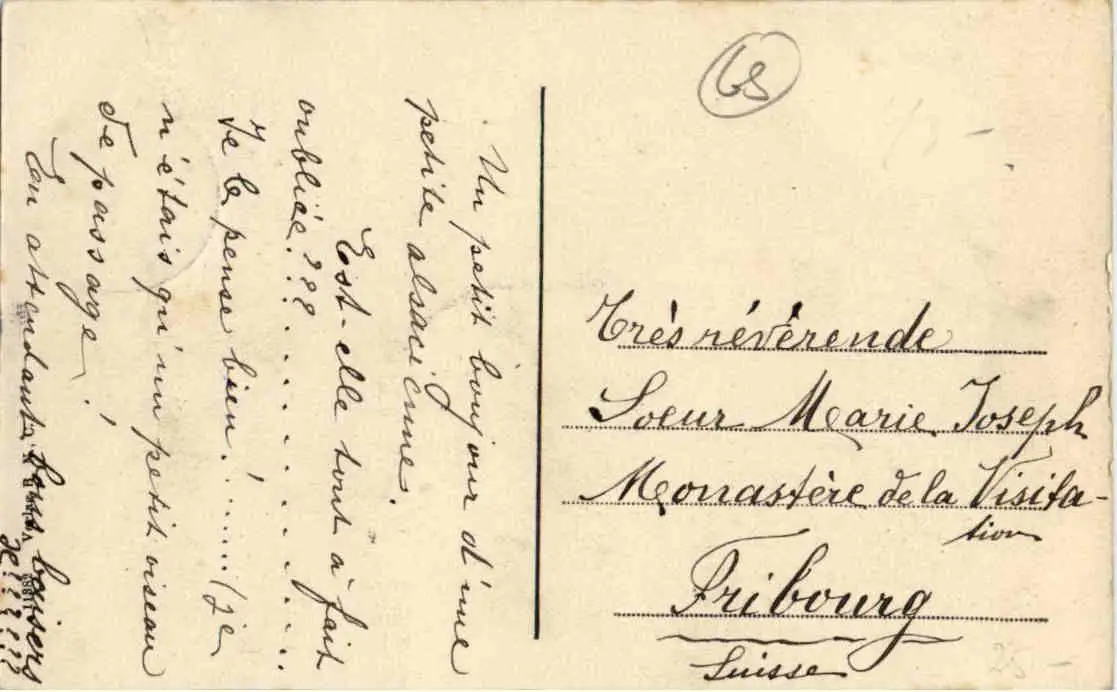 Un petit bonjour d'une
petite alsacienne.
Est-elle tout à fait
oubliée.??? . . . . . . . . .
Je le pense bien! . . . . . . (je
n'étais qu'un petit oiseau
de passage!
En attendant bons baisers
68
Très révérende
Soeur Marie Joseph
Monastère de la Visita-
tion
Fribourg
Suisse
25 -